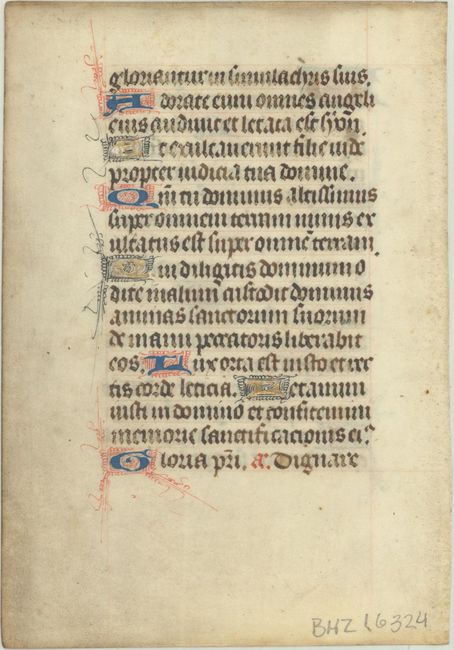 gloriantur in simulachris suis.
Adorate eum omnes angeli
eius audivit et letata est syon.
Et exultaverunt filie iude
propter iudicia tua domine.
Qm̄ tu dominus altissimus
super omnem terram nimis ex
ultatus es super omnē terram.
Qui diligitis dominum o
dite malum custodit dominus
animas sanctorum suorum
de manu peccatoris liberabit
eos. Lux orta est iusto et rec
tis corde leticia. Letamini
iusti in domino et confitemini
memorie sanctificacionis eiꝰ
Gloria pr̄i. a. Dignare
BHZ 16324